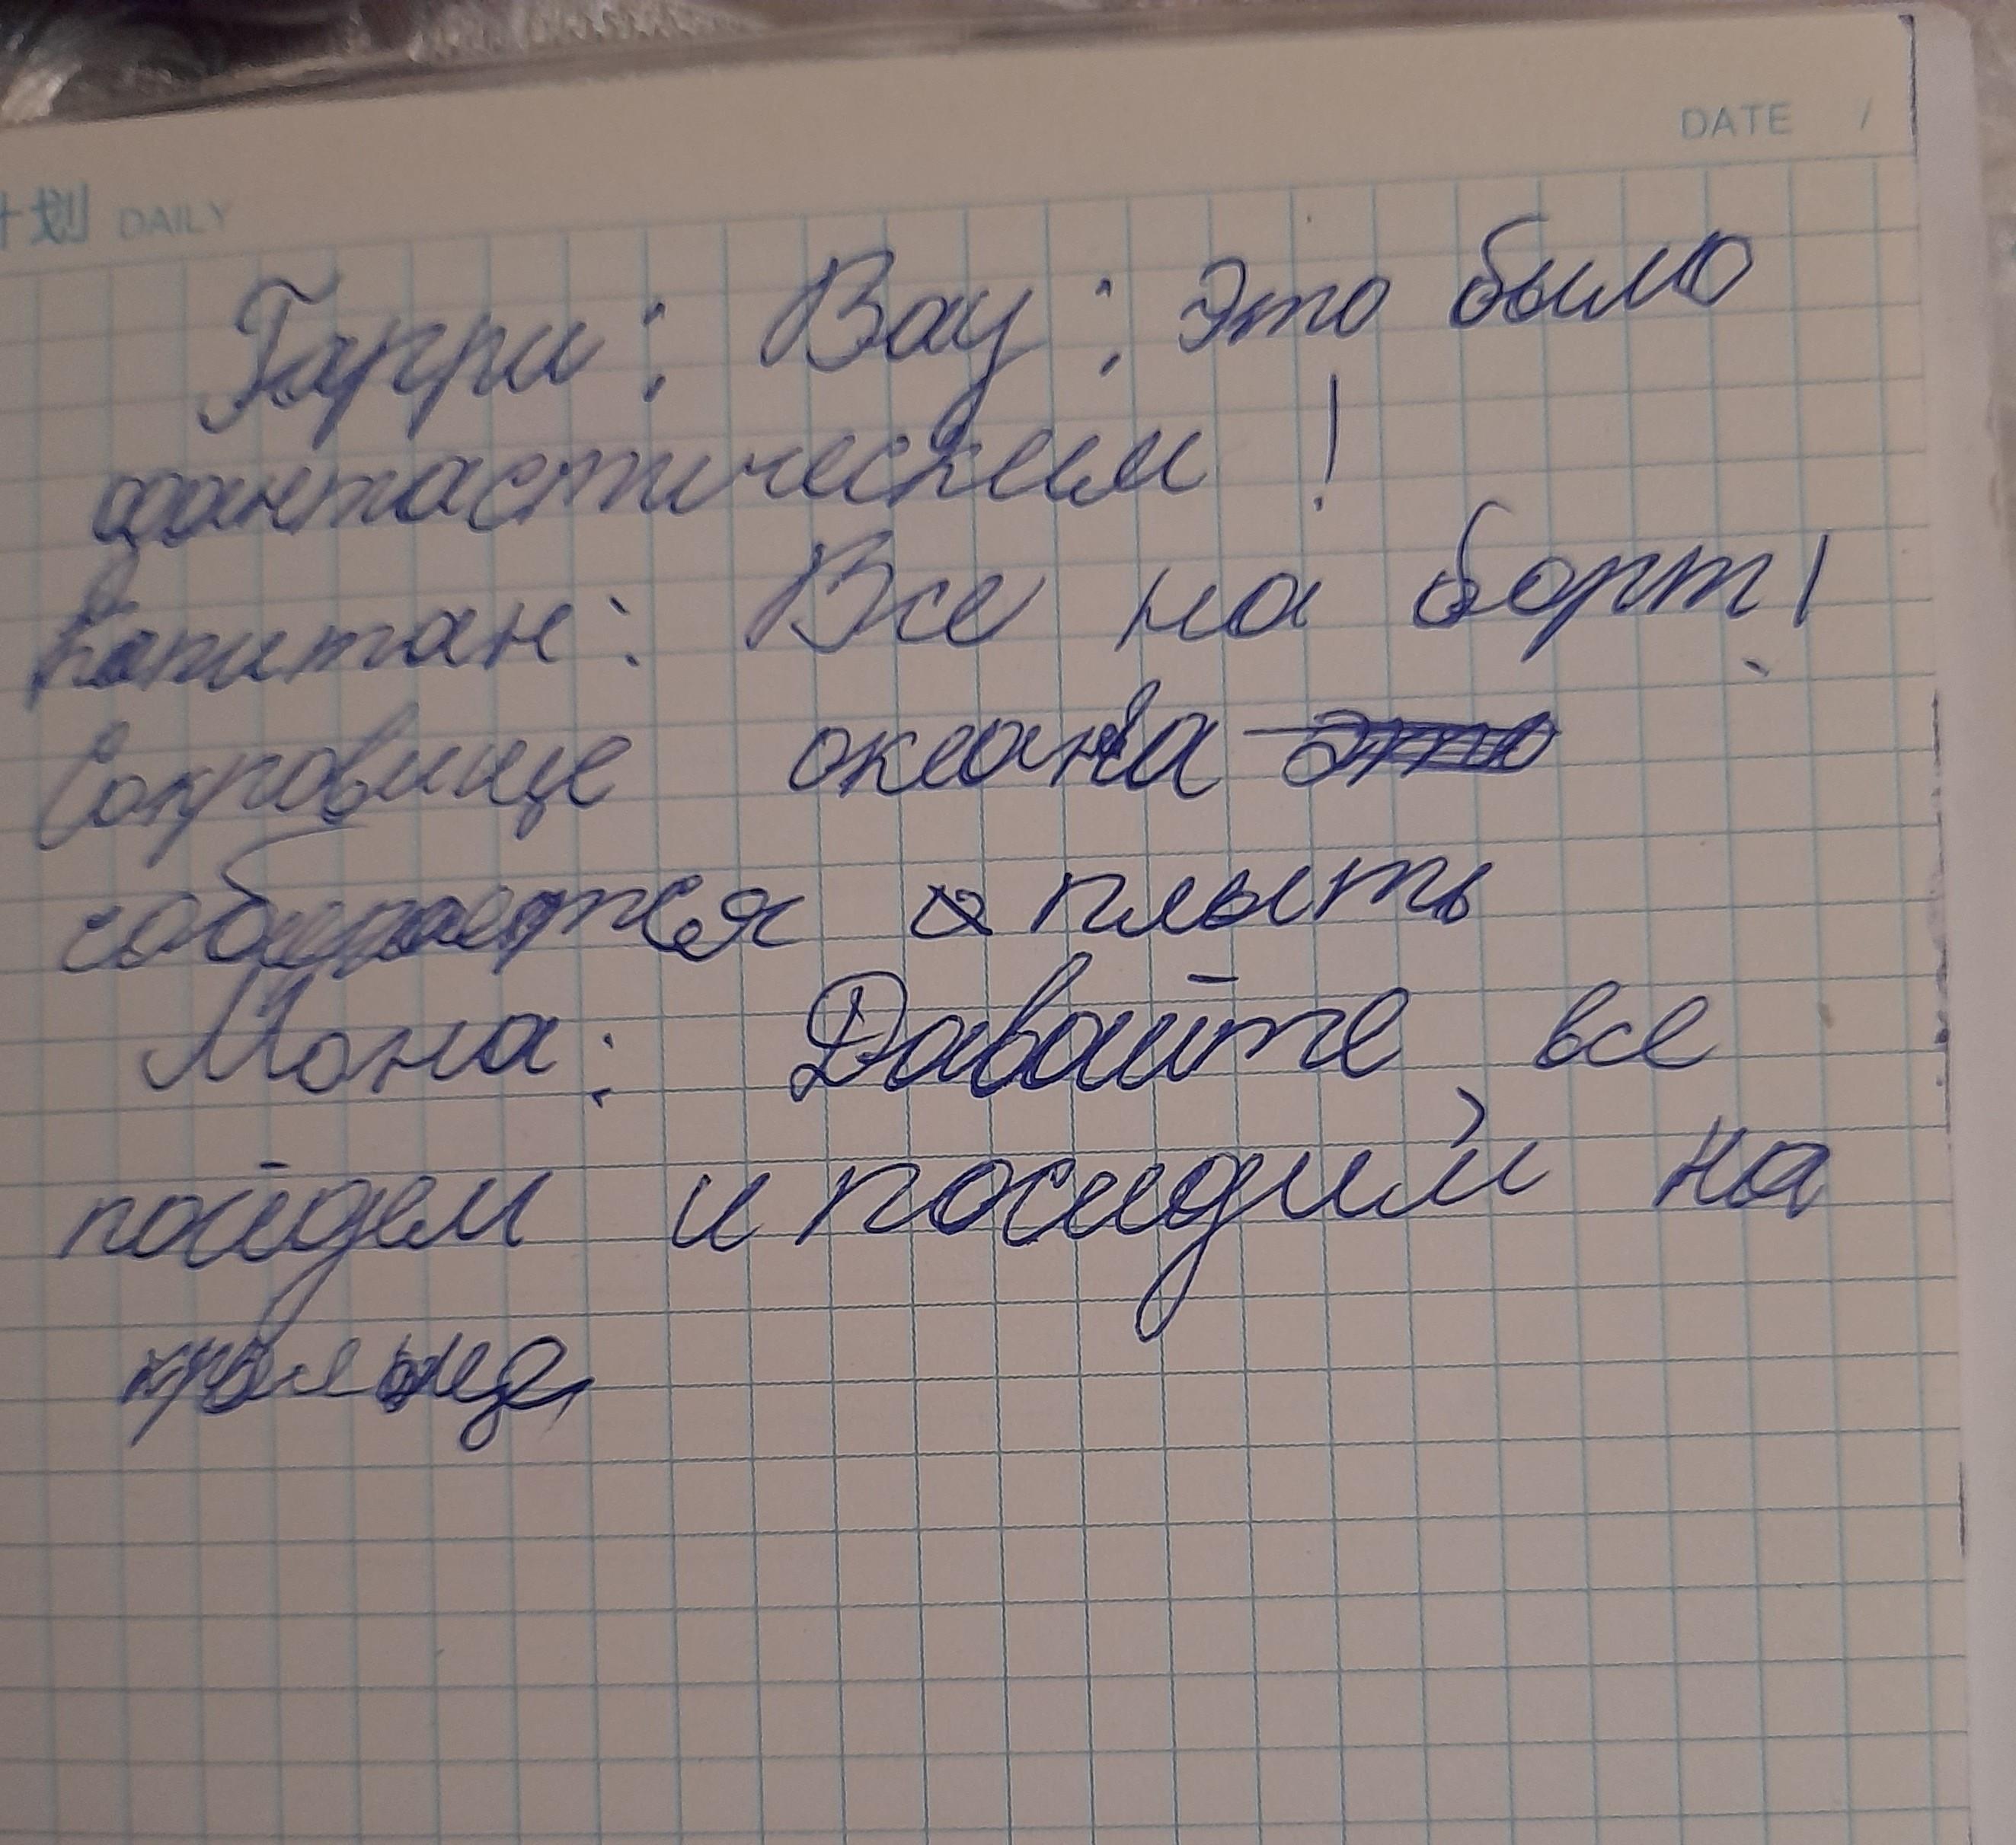 DATE /
计划 DAILY
Гарри: Вау; это было
фантастическим!
Капитан: Все на борт!
Сокровище океана это
собирается плыть
Мона: Давайте все
пойдем и посидим на
крыльце